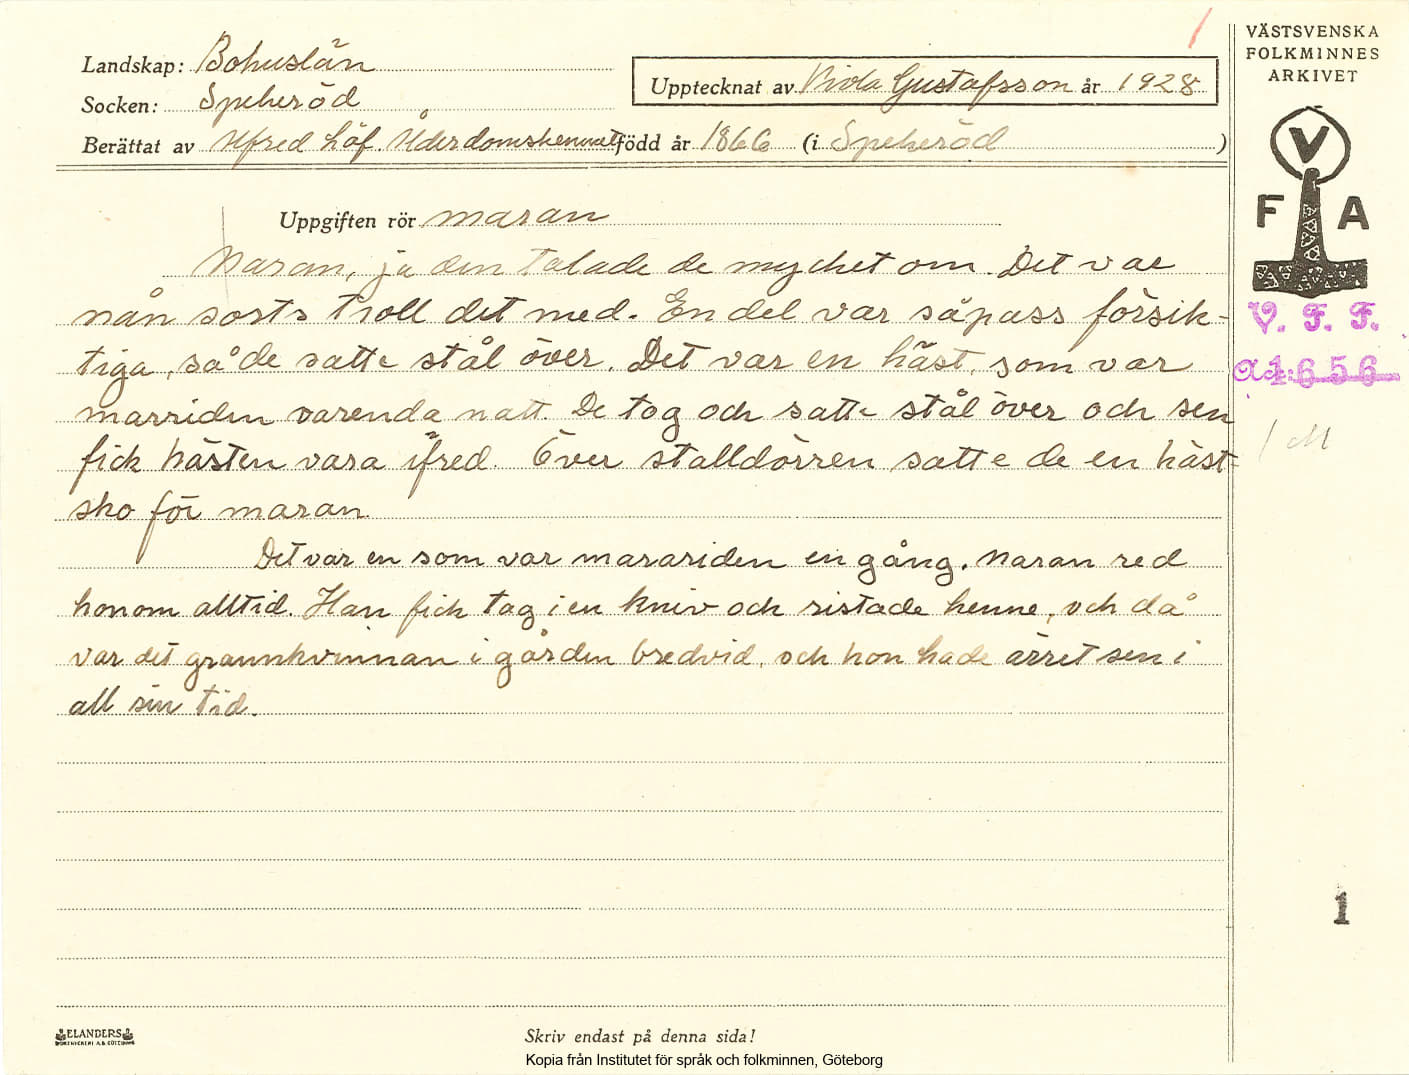 VÄSTSVENSKA
FOLKMINNES
ARKIVET
Landskap: Bohuslän
Upptecknat av Viola Gustafsson år 1928
Socken: Spekeröd
Berättat av Alfred Löf. Ålderdomshemmet född år 1866 (i Spekeröd)
V
F A
Uppgiften rör maran
Maran, ja den talade de mycket om. Det var
nån sorts troll det med. En del var såpass försik-
tiga, så de satte stål över. Det var en häst, som var
marriden varenda natt. De tog och satte stål över och sen
fick hästen vara ifred. Över stalldörren satte de en häst-
sko för maran.
Det var en som var marariden en gång. Maran red
honom alltid. Han fick tag i en kniv och ristade henne, och då
var det grannkvinnan i gården bredvid, och hon hade ärret sen i
all sin tid.
V. F. F.
1656
M
1
ELANDERS
Skriv endast på denna sida!
Kopia från Institutet för språk och folkminnen, Göteborg